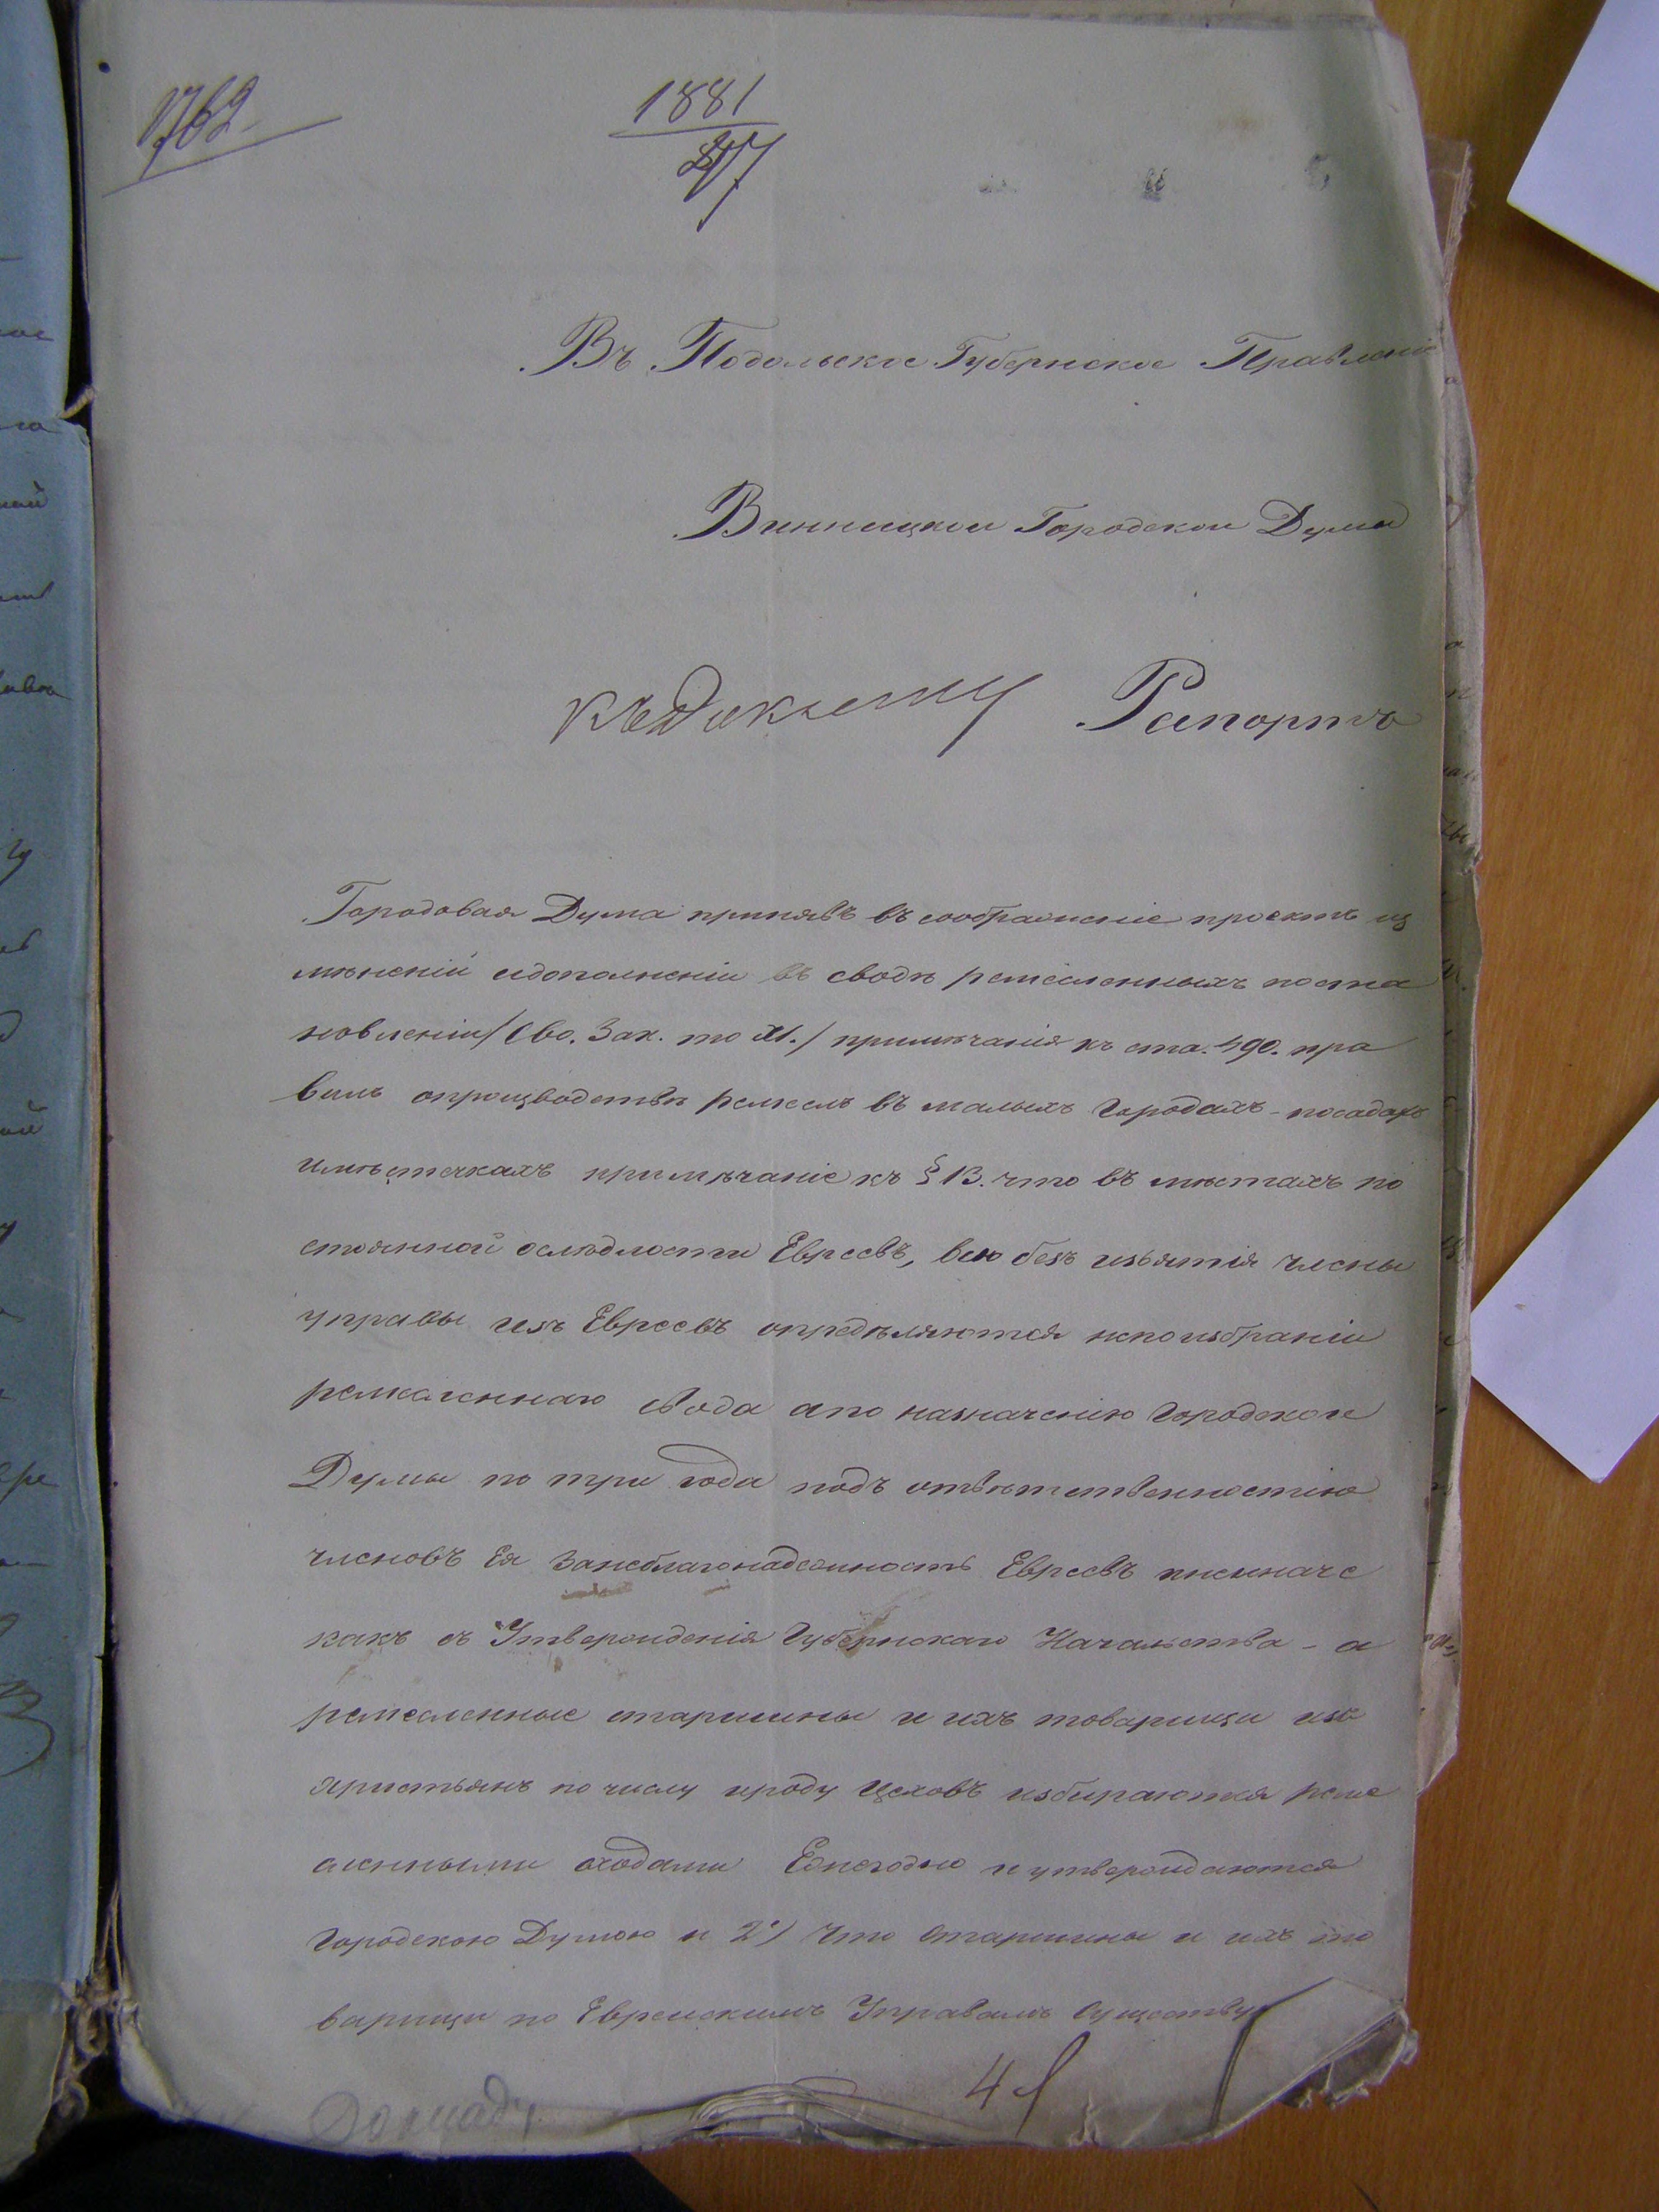 1762
1881
Въ Подольское Губернское Правленіе
Винницкои Городскои Думы
Рапортъ
Городовая Дума принявъ въ соображеніе проектъ из
мѣненій идополненіи въ сводѣ ремесленныхъ поста
новленіи /Сво. Зак. то XI./ примѣчанія къ ста. 490. пра
вилъ опроизводствѣ ремеслъ въ малыхъ городахъ - посадахъ
имѣстечкахъ примѣчаніе къ § 13. что въ мѣстахъ по
стоянной осѣдлости Евреевъ, всѣ безъ изъятія члены
управы изъ Евреевъ опредѣляются непоизбранію
ремесленнаго схода апо назначенію Городскои
Думы по три года подъ отвѣтственностію
членовъ Ея Занеблагонадежность Евреевъ ниеиначе
какъ съ Утвержденія Губернскаго Начальства - а
ремесленные старшины и ихъ товарищи изъ
христьянъ по числу ироду цеховъ избираются реме
сленными сходами Ежегодно иутверждаются
Городскою Думою и 2) Что Старшины и ихъ то
варищи по Евреискимъ Управамъ Существу